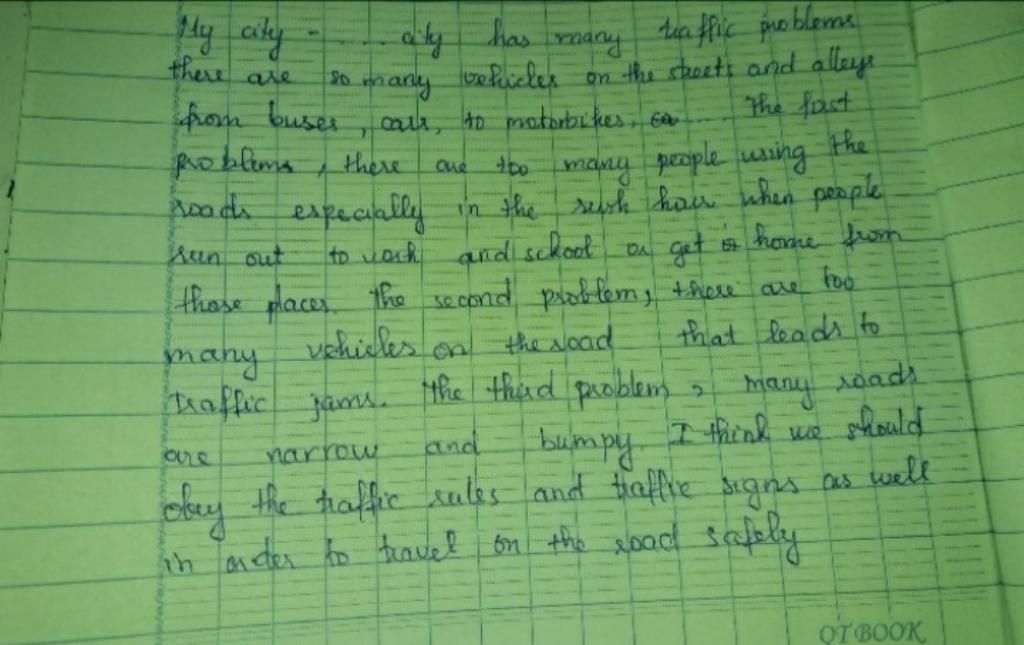 My city - ..... city has many traffic problems
there are so many vehicles on the streets and alleys
from buses, cars, to motorbikes, ..... The fast
problems, there are too many people using the
roads especially in the rush hour when people
run out to work and school or get home from
those places. The second problem, there are too
many vehicles on the road that leads to
traffic jams. The third problem, many roads
are narrow and bumpy. I think we should
obey the traffic rules and traffic signs as well
in order to travel on the road safely
OTBOOK